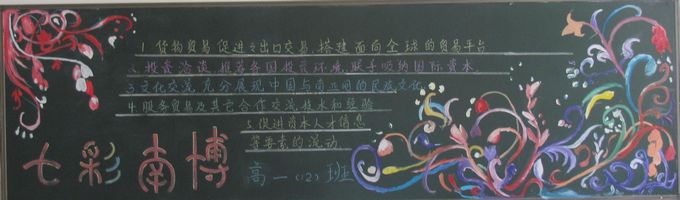 1.货物贸易,促进之出口交易,搭建面向全球的贸易平台
2.投资洽谈,推荐各国投资环境,联手吸纳国际资本
3.文化交流,充分展现中国与南亚间的民族文化
4.服务贸易及其它合作交流,技术和经验
5.促进资本人才信息
等要素的流动
七彩南博
高一(12)班